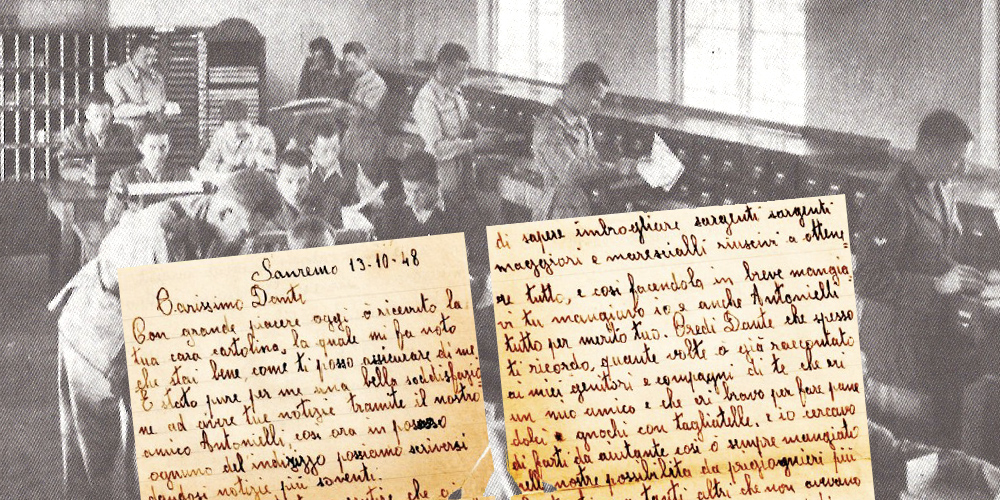 Sanremo 13-10-48
Carissimo Dante
Con grande piacere oggi ò ricevuto la
tua cara cartolina, la quale mi fa noto
che stai bene, come ti posso assicurare di me.
E stato pure per me una bella soddisfazio=
ne ad avere tue notizie tramite il nostro
amico Antonielli, cosi ora in possesso
ognuno del indirizzo possiamo scriversi
dandosi notizie più soventi.
di sapere imbrogliare sargenti sargenti
maggiori e marescialli riuscivi a ottene=
re tutto, e cosi facendola in breve mangia
vi tu mangiavo io e anche Antonielli
tutto per merito tuo. Credi Dante che spesso
ti ricordo, quante volte ò già raccontato
ai miei genitori e compagni di te che eri
un mio amico e che eri bravo per fare pane
dolci e gnochi con tagliatelle, e io cercavo
di farti da aiutante cosi ò sempre mangiato
nelle nostre possibilità da prigiognieri più
tanti altri che non avevano